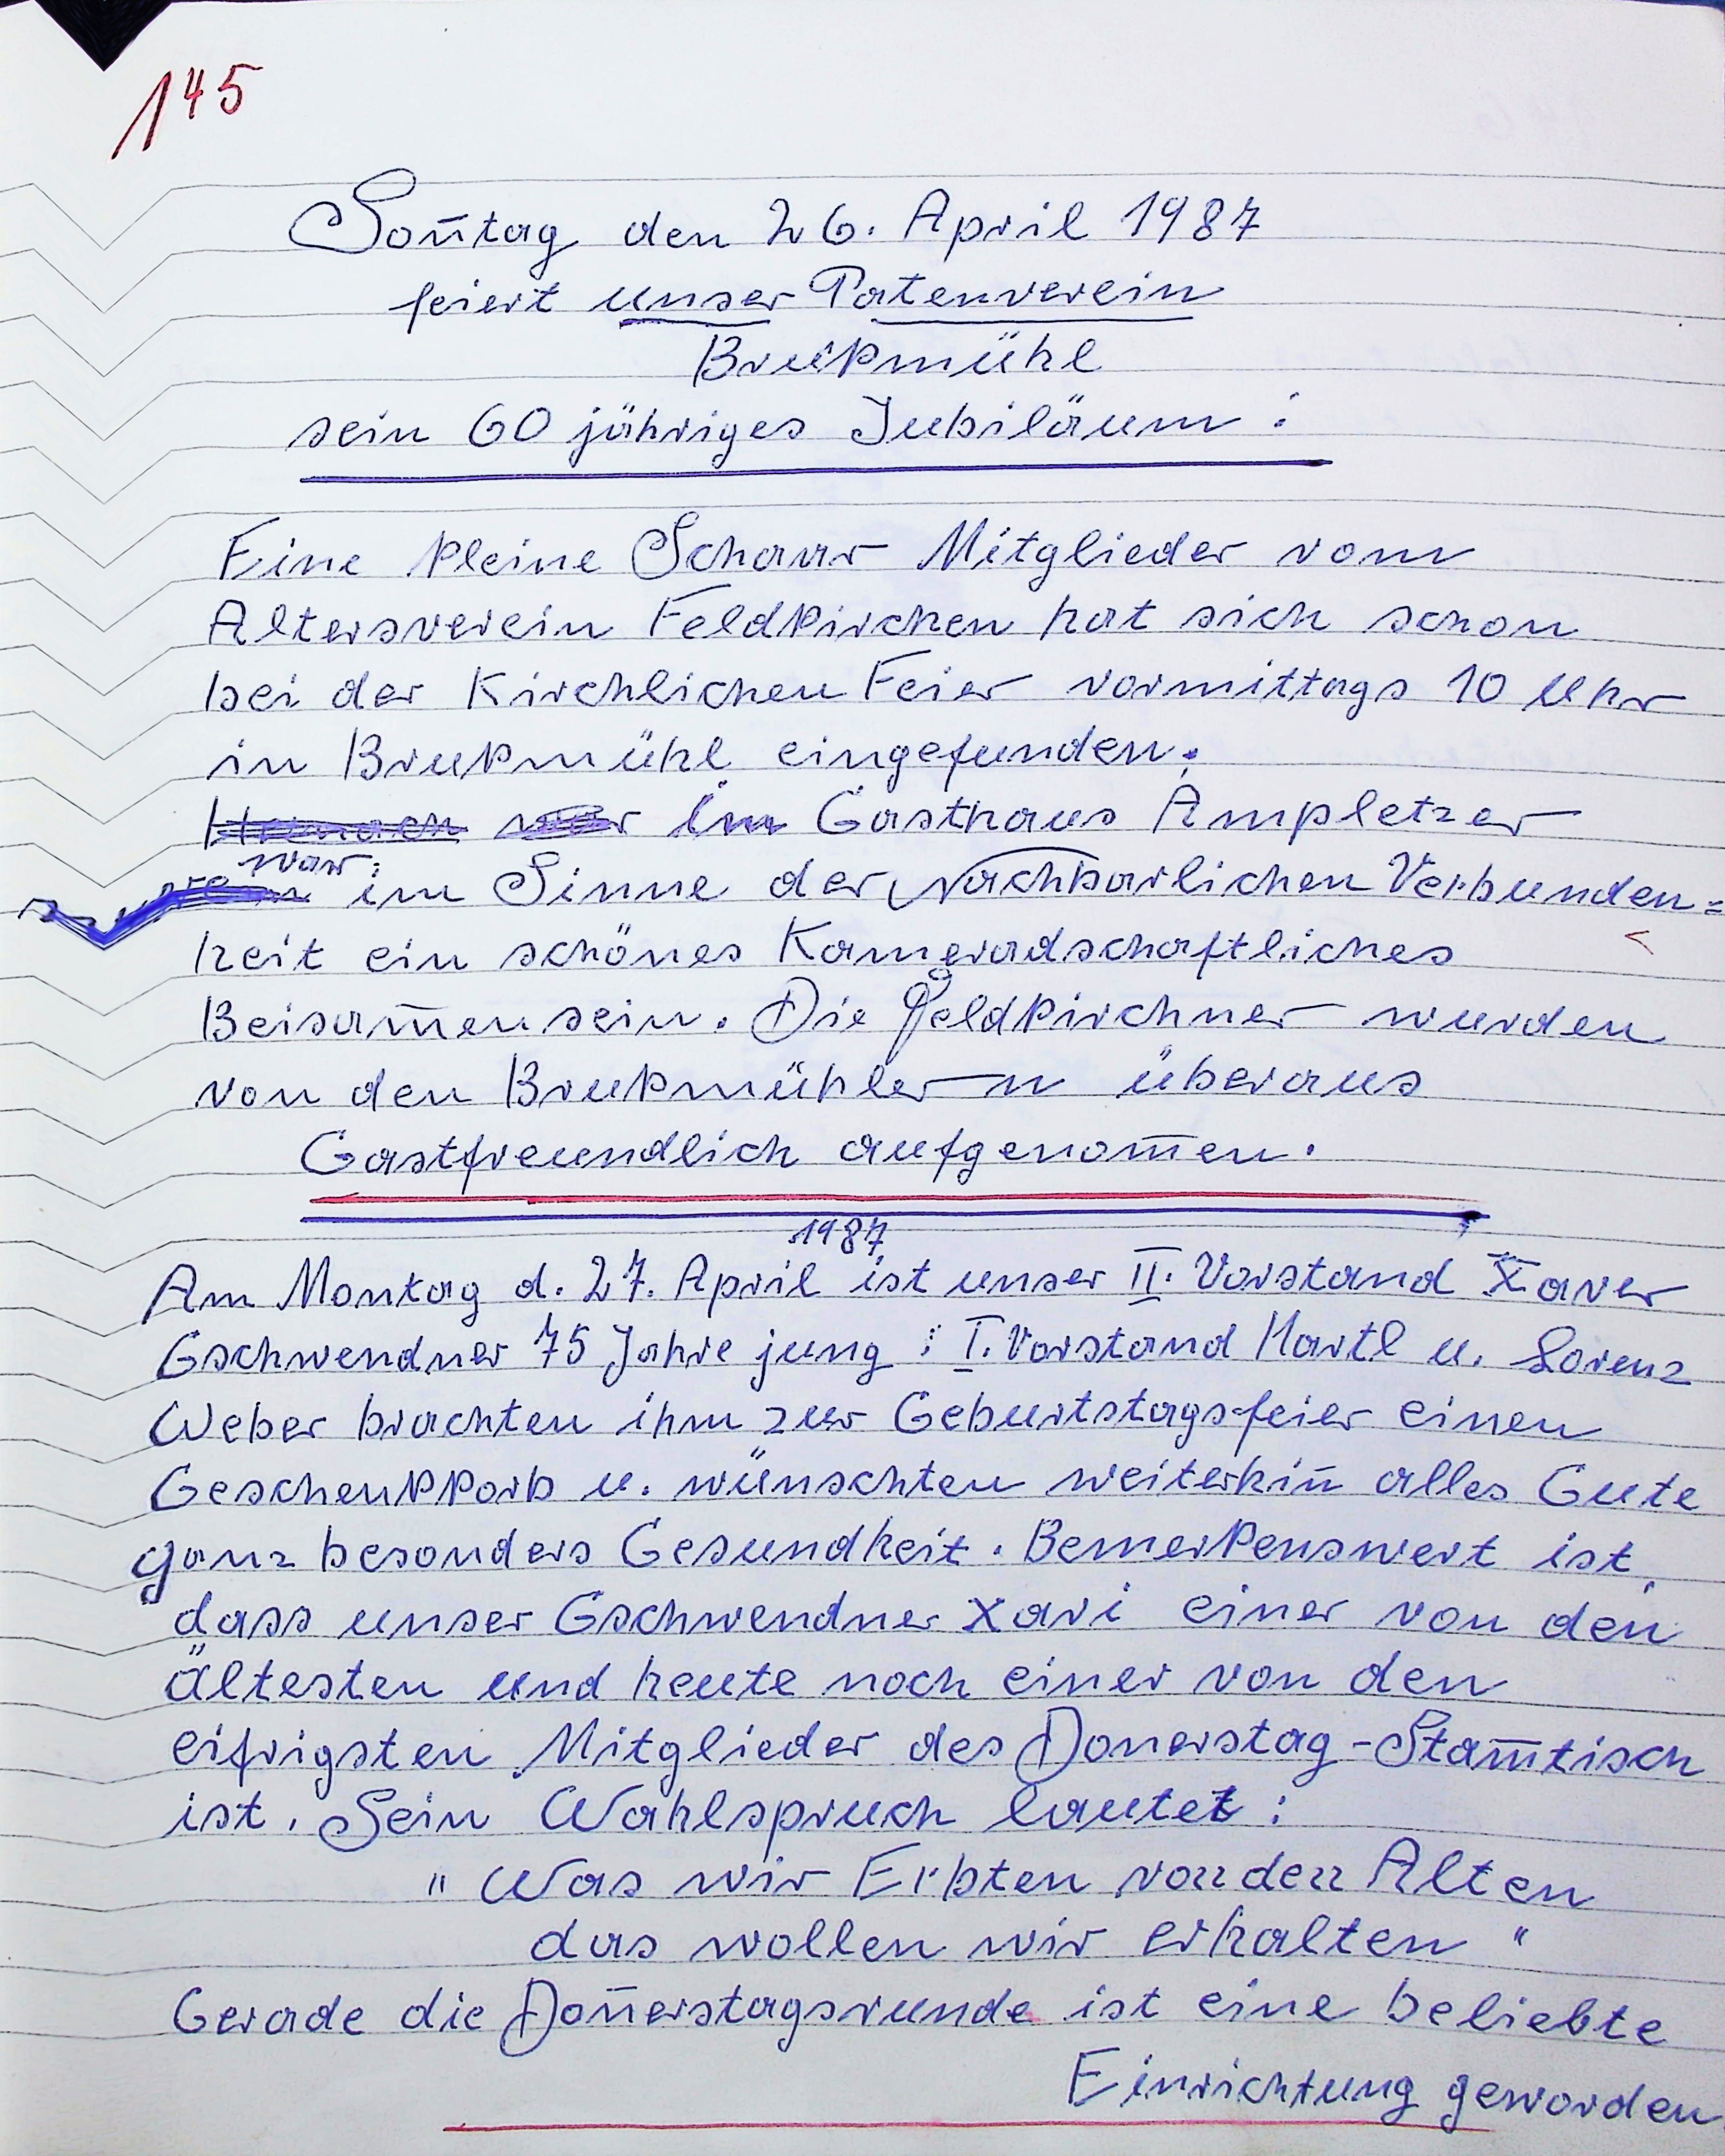 145
Son̄tag den 26. April 1987
feiert unser Patenverein
Bruckmühl
sein 60 jähriges Jubiläum :
Eine kleine Schaar Mitglieder vom
Altersverein Feldkirchen hat sich schon
bei der Kirchlichen Feier vormittags 10 Uhr
in Brukmühl eingefunden.
im Gasthaus Ampletzer
war:
im Sinne der Nachbarlichen Verbunden=
heit ein schönes Kameradschaftliches
Beisam̄ensein. Die Feldkirchner wurden
von den Brukmühlern überaus
Gastfreundlich aufgenom̄en.
1987
Am Montag d. 27. April ist unser II. Vorstand Xaver
Gschwendner 75 Jahre jung : I. Vorstand Hartl u. Lorenz
Weber brachten ihm zur Geburtstagsfeier einen
Geschenkkorb u. wünschten weiterhin̄ alles Gute
ganz besonders Gesundheit. Bemerkenswert ist,
dass unser Gschwendner Xavi einer von den
ältesten und heute noch einer von den
eifrigsten Mitglieder des Donerstag-Stam̄tisch
ist. Sein Wahlspruch lautet :
" Was wir Erbten von den Alten
das wollen wir erhalten "
Gerade die Don̄erstagsrunde ist eine beliebte
Einrichtung geworden